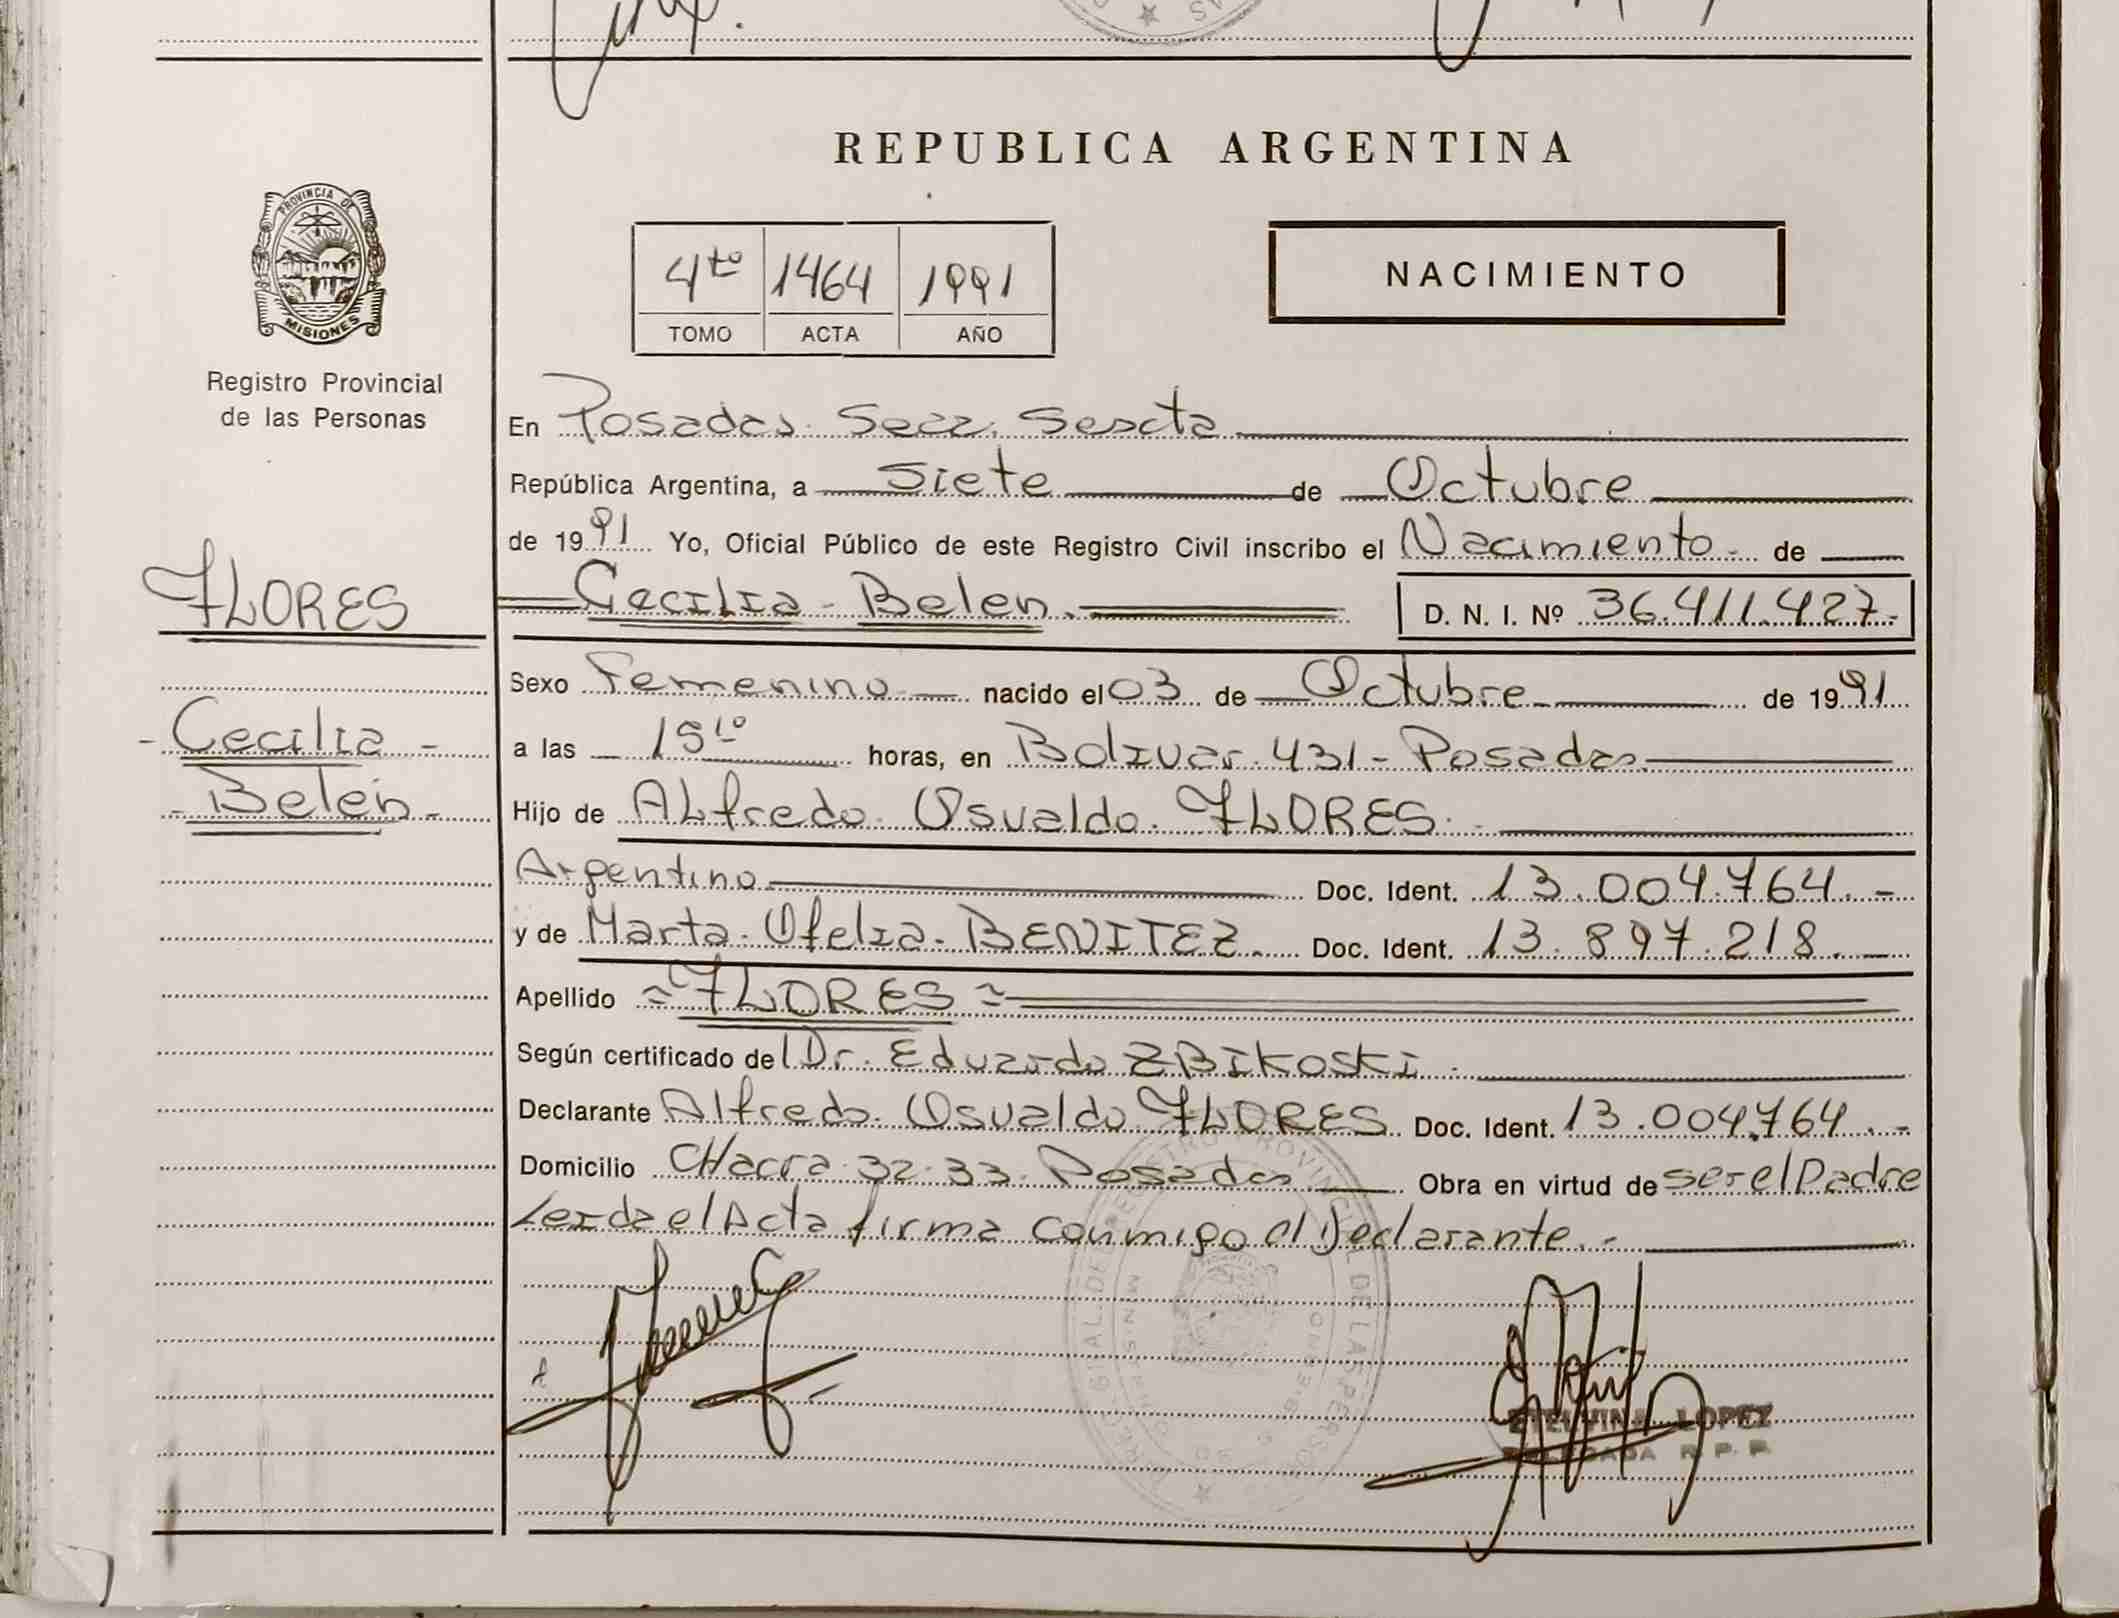 REPUBLICA ARGENTINA
PROVINCIA DE
MISIONES
Registro Provincial
de las Personas
4to 1464 1991
TOMO ACTA AÑO
NACIMIENTO
FLORES
- Cecilia -
- Belén -
En Posadas. Secc. Sexta
República Argentina, a Siete de Octubre
de 1991 Yo, Oficial Público de este Registro Civil inscribo el Nacimiento de
Cecilia - Belen. D. N. I. Nº 36.411.427.-
Sexo Femenino nacido el 03 de Octubre de 1991
a las 15 10 horas, en Bolivar. 431 - Posadas.
Hijo de Alfredo. Osvaldo. FLORES.
Argentino Doc. Ident. 13.004.764.-
y de Marta. Ofelia. BENITEZ. Doc. Ident. 13.897.218.
Apellido = FLORES =
Según certificado del Dr. Eduardo ZBIKOSKI.
Declarante Alfredo. Osvaldo FLORES Doc. Ident. 13.004.764.-
Domicilio CHacra. 32-33. Posadas Obra en virtud de ser el Padre
Leida el Acta firma conmigo el Declarante.-
ETELVINA LOPEZ
DELEGADA R. P. P.